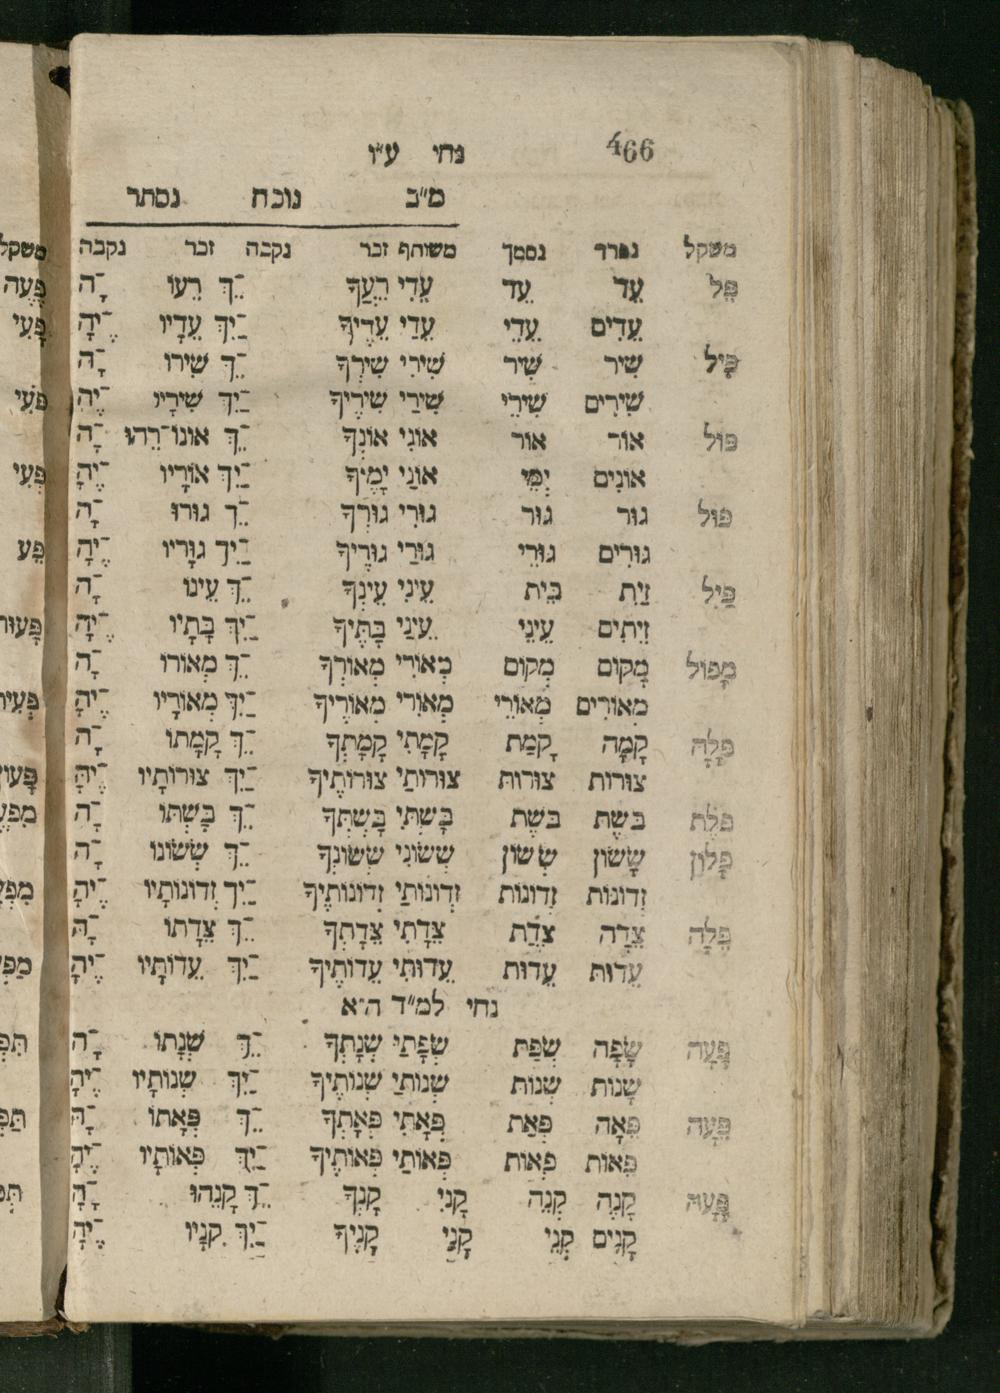 466 נחי ע״ו
מ״ב נוכח נסתר
משקל נפרד נסמך משותף זכר נקבה זכר נקבה
פֵּל עֵד עֵד עֵדִי רֵעֲךָ ־ֵךְ רֵעוֹ ־ָהּ
עֵדִים עֵדֵי עֵדַי עֵדֶיךָ ־ַיִךְ עֵדָיו ־ֶיהָ
פִּיל שִׁיר שִׁיר שִׁירִי שִׁירְךָ ־ֵךְ שִׁירוֹ ־ָהּ
שִׁירִים שִׁירֵי שִׁירַי שִׁירֶיךָ ־ַיִךְ שִׁירָיו ־ֶיהָ
פּוֹל אוֹר אוֹר אוֹנִי אוֹנְךָ ־ֵךְ אוֹנוֹ־רֵהוּ ־ָהּ
אוֹנִים יְמֵי אוֹנַי יָמֶיךָ ־ַיִךְ אוֹרָיו ־ֶיהָ
פּוּל גּוּר גּוּר גּוּרִי גּוּרְךָ ־ֵךְ גּוּרוֹ ־ָהּ
גּוּרִים גּוּרֵי גּוּרַי גּוּרֶיךָ ־ַיִךְ גּוּרָיו ־ֶיהָ
פַּיִל זַיִת בֵּית עֵינִי עֵינְךָ ־ֵךְ עֵינוֹ ־ָהּ
זֵיתִים עֵינֵי עֵינַי בָּתֶּיךָ ־ַיִךְ בָּתָּיו ־ֶיהָ
מָפוֹל מָקוֹם מְקוֹם מְאוֹרִי מְאוֹרְךָ ־ֵךְ מְאוֹרוֹ ־ָהּ
מְאוֹרִים מְאוֹרֵי מְאוֹרַי מְאוֹרֶיךָ ־ַיִךְ מְאוֹרָיו ־ֶיהָ
פָּלָה קָמָה קָמַת קָמָתִי קָמָתְךָ ־ֵךְ קָמָתוֹ ־ָהּ
צוּרוֹת צוּרוֹת צוּרוֹתַי צוּרוֹתֶיךָ ־ַיִךְ צוּרוֹתָיו ־ֶיהָ
פֹּלֶת בֹּשֶׁת בֹּשֶׁת בָּשְׁתִּי בָּשְׁתְּךָ ־ֵךְ בָּשְׁתּוֹ ־ָהּ
פָּלוֹן שָׂשׂוֹן שְׂשׂוֹן שְׂשׂוֹנִי שְׂשׂוֹנְךָ ־ֵךְ שְׂשׂוֹנוֹ ־ָהּ
זְדוֹנוֹת זְדוֹנוֹת זְדוֹנוֹתַי זְדוֹנוֹתֶיךָ ־ַיִךְ זְדוֹנוֹתָיו ־ֶיהָ
פֵּלָה צֵדָה צֵדַת צֵדָתִי צֵדָתְךָ ־ֵךְ צֵדָתוֹ ־ָהּ
עֵדוֹת עֵדוֹת עֵדוֹתַי עֵדוֹתֶיךָ ־ַיִךְ עֵדוֹתָיו ־ֶיהָ
נחי למ״ד ה״א
פָּעָה שָׂפָה שְׂפַת שְׂפָתִי שְׁנָתְךָ ־ֵךְ שְׁנָתוֹ ־ָהּ
שָׁנוֹת שְׁנוֹת שְׁנוֹתַי שְׁנוֹתֶיךָ ־ַיִךְ שְׁנוֹתָיו ־ֶיהָ
פֵּעָה פֵּאָה פְּאַת פְּאָתִי פְּאָתְךָ ־ֵךְ פְּאָתוֹ ־ָהּ
פֵּאוֹת פְּאוֹת פְּאוֹתַי פְּאוֹתֶיךָ ־ַיִךְ פְּאוֹתָיו ־ֶיהָ
פָּעֶה קָנֶה קְנֵה קָנִי קָנְךָ ־ֵךְ קָנֵהוּ ־ָהּ
קָנִים קְנֵי קָנַי קָנֶיךָ ־ַיִךְ קָנָיו ־ֶיהָ